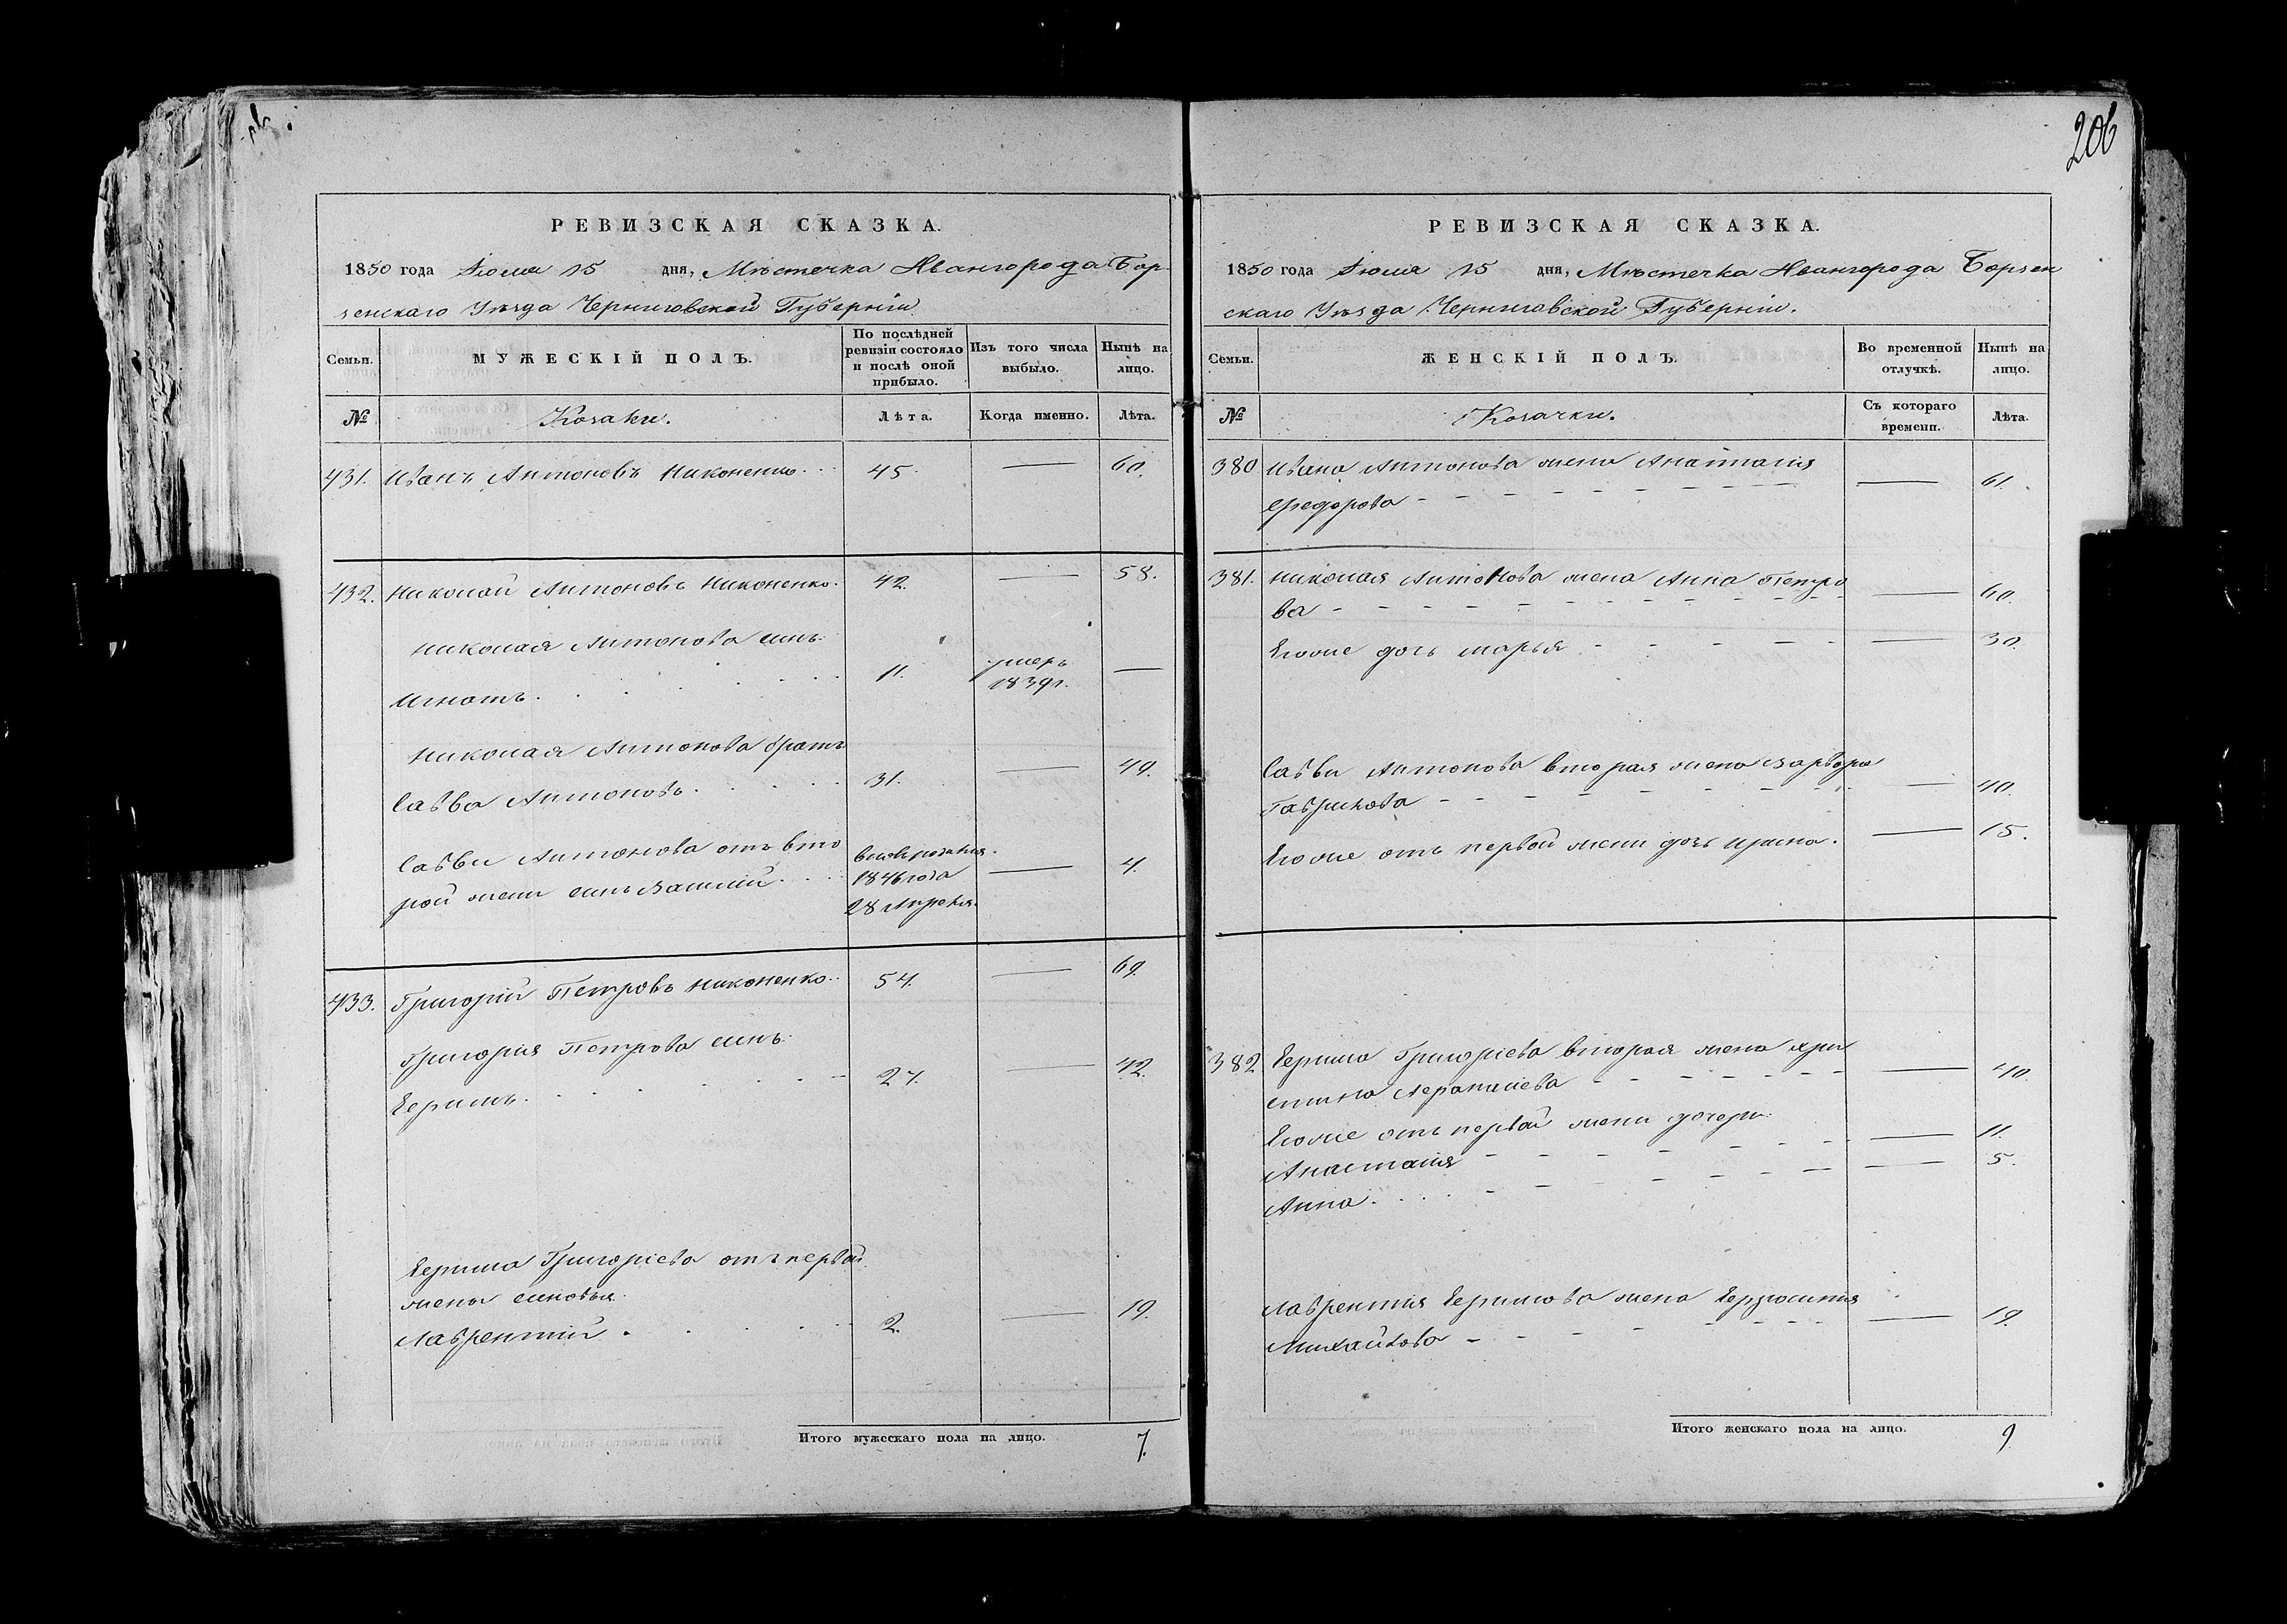 206
РЕВИЗСКАЯ СКАЗКА.
1850 года Июля 15 дня, Мѣстечка Ивангорода Бор-
зенскаго Уѣзда Черниговской Губерніи
Семьи.
МУЖЕСКІЙ ПОЛЪ.
По послѣдней ревизіи состояло и послѣ оной прибыло.
Изъ того числа выбыло.
Нынѣ на лицо.
№
Козаки.
Лѣта.
Когда именно.
Лѣта.
431. Иванъ Антоновъ Никоненко 45. — 60.
432. Николай Антоновъ Никоненко. 42. — 58.
Николая Антонова сынъ
Игнатъ. 11. умеръ 1839г. —
Николая Антонова братъ
Савва Антоновъ. 31. — 49.
Саввы Антонова отъ вто
рой жены сынъ Василий 1846 года 28 Апреля — 4.
433. Григорій Петровъ Никоненко 54. — 69.
Григорія Петрова сынъ
Ефимъ. 27. — 42.
Ефима Григоріева отъ первой
жены сыновья
Лаврентій. 2. — 19.
Итого мужескаго пола на лицо. 7.
РЕВИЗСКАЯ СКАЗКА.
1850 года Июля 15 дня, Мѣстечка Ивангорода Борзен
скаго Уѣзда Черниговской Губерніи.
Семьи.
ЖЕНСКІЙ ПОЛЪ.
Во временной отлучкѣ.
Нынѣ на лицо.
№
Козачки.
Съ котораго времени.
Лѣта.
380 Ивана Антонова жена Анастасія
Федорова — 61.
381. Николая Антонова жена Анна Петро
ва — 60.
Егоже дочь Марья — 30.
Саввы Антонова вторая жена Варвара
Гаврилова — 40.
Егоже отъ первой жены дочь Ирина. — 15.
382 Ефима Григоріева вторая жена Хри
стина — 40.
Егоже отъ первой жены дочери
Анастасія — 11.
Анна. — 5.
Лаврентія Ефимова жена Ефросинія
Михайлова — 19.
Итого женскаго пола на лицо. 9